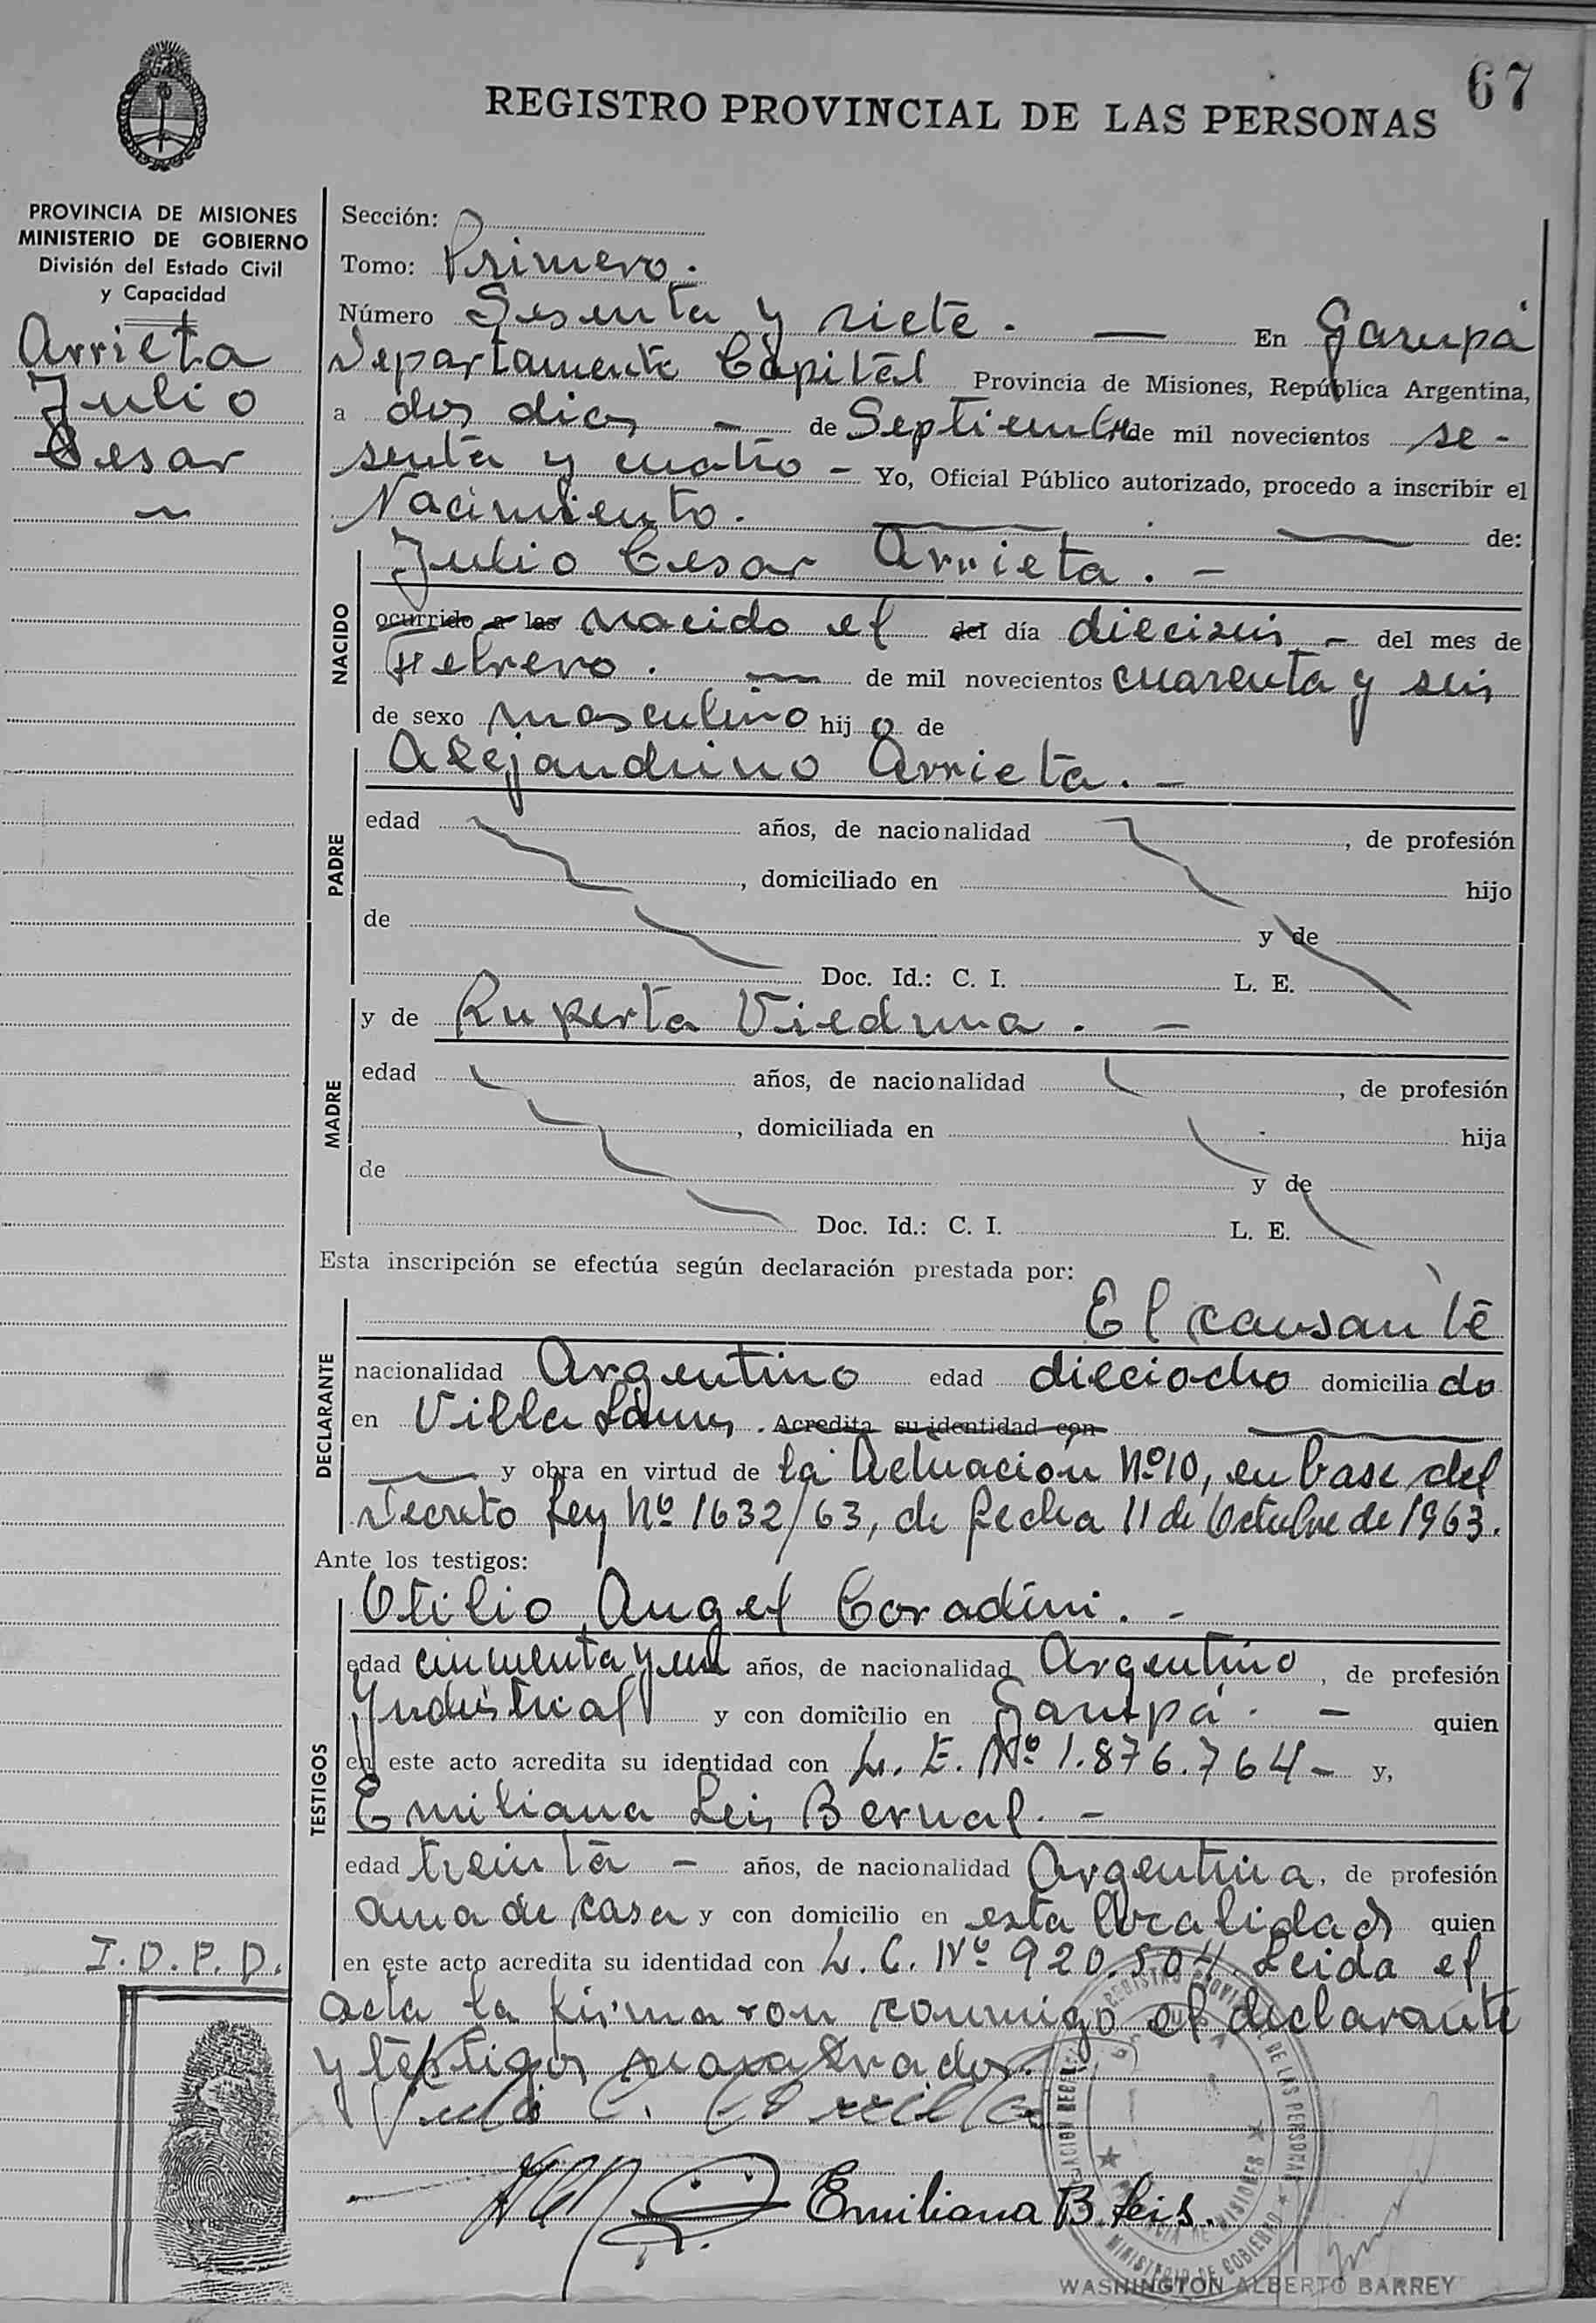 67
REGISTRO PROVINCIAL DE LAS PERSONAS
PROVINCIA DE MISIONES
MINISTERIO DE GOBIERNO
División del Estado Civil
y Capacidad
Arrieta
Julio
Cesar
Sección:
Tomo: Primero.
Número Sesenta y siete. — En Garupá
Departamento Capital Provincia de Misiones, República Argentina,
a dos dias — de Septiembre de mil novecientos se-
senta y cuatro — Yo, Oficial Público autorizado, procedo a inscribir el
Nacimiento. — de:
NACIDO
Julio Cesar Arrieta. —
ocurrido a las nacido el del día dieciseis — del mes de
Febrero. — de mil novecientos cuarenta y seis
de sexo masculino hijo de
PADRE
Alejandrino Arrieta. —
edad años, de nacionalidad , de profesión
, domiciliado en hijo
de y de
Doc. Id.: C. I. L. E.
MADRE
y de Ruperta Viedma. —
edad años, de nacionalidad , de profesión
, domiciliada en hija
de y de
Doc. Id.: C. I. L. E.
Esta inscripción se efectúa según declaración prestada por:
DECLARANTE
El causante
nacionalidad Argentino edad dieciocho domiciliado
en Villa . Acredita su identidad con
y obra en virtud de la Actuación Nº 10, en base del
Decreto Ley Nº 1632/63, de fecha 11 de Octubre de 1963.
Ante los testigos:
TESTIGOS
Otilio Angel Coradini. —
edad cincuenta y un años, de nacionalidad Argentino, de profesión
Industrial y con domicilio en Garupá. — quien
en este acto acredita su identidad con L. E. Nº 1.876.764 — y,
Emiliana Leis Bernal. —
edad treinta — años, de nacionalidad Argentina, de profesión
ama de casa y con domicilio en esta localidad quien
en este acto acredita su identidad con L. C. Nº 920.504. Leida el
acta la firmaron conmigo el declarante
y testigos
I.D.P.D.
Emiliana B. Leis.
REGISTRO PROVINCIAL DE LAS PERSONAS
MINISTERIO DE GOBIERNO
WASHINGTON ALBERTO BARREY